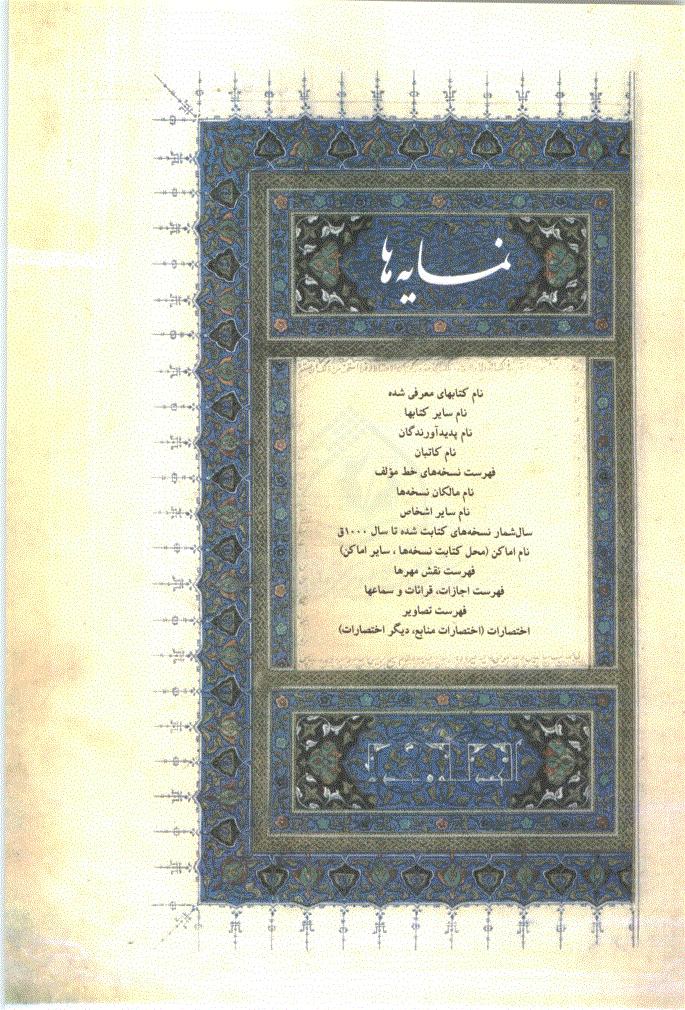 نمایه‌ها
نام کتابهای معرفی شده
نام سایر کتابها
نام پدیدآورندگان
نام کاتبان
فهرست نسخه‌های خط مؤلف
نام مالکان نسخه‌ها
نام سایر اشخاص
سال‌شمار نسخه‌های کتابت شده تا سال ۱۰۰۰ق
نام اماکن (محل کتابت نسخه‌ها ، سایر اماکن)
فهرست نقش مهرها
فهرست اجازات، قرائات و سماعها
فهرست تصاویر
اختصارات (اختصارات منابع، دیگر اختصارات)